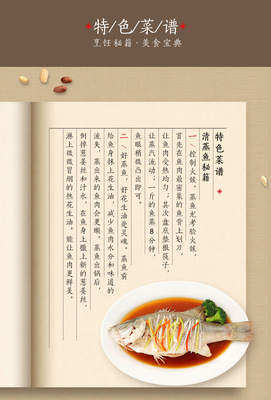 特/色/菜/谱
烹饪秘籍·美食宝典
特色菜谱
清蒸鱼秘籍
一／控制火候，蒸鱼尤考验火候，
首先在鱼肉最密集的鱼背上划刀，
让鱼肉受热均匀；其次盘底垫根筷子，
让蒸汽流动；一斤的鱼蒸8分钟，
鱼眼稍微凸出即可。
二／好蒸鱼，好花生油是灵魂，蒸鱼前
给鱼身抹上花生油，减少鱼肉水分和味道的
流失，蒸出来的鱼肉会更嫩，蒸鱼出锅后，
倒掉葱姜丝和汁水，在鱼身上撒上新的葱姜丝，
淋上微微冒烟的热花生油，能让鱼肉更鲜美。